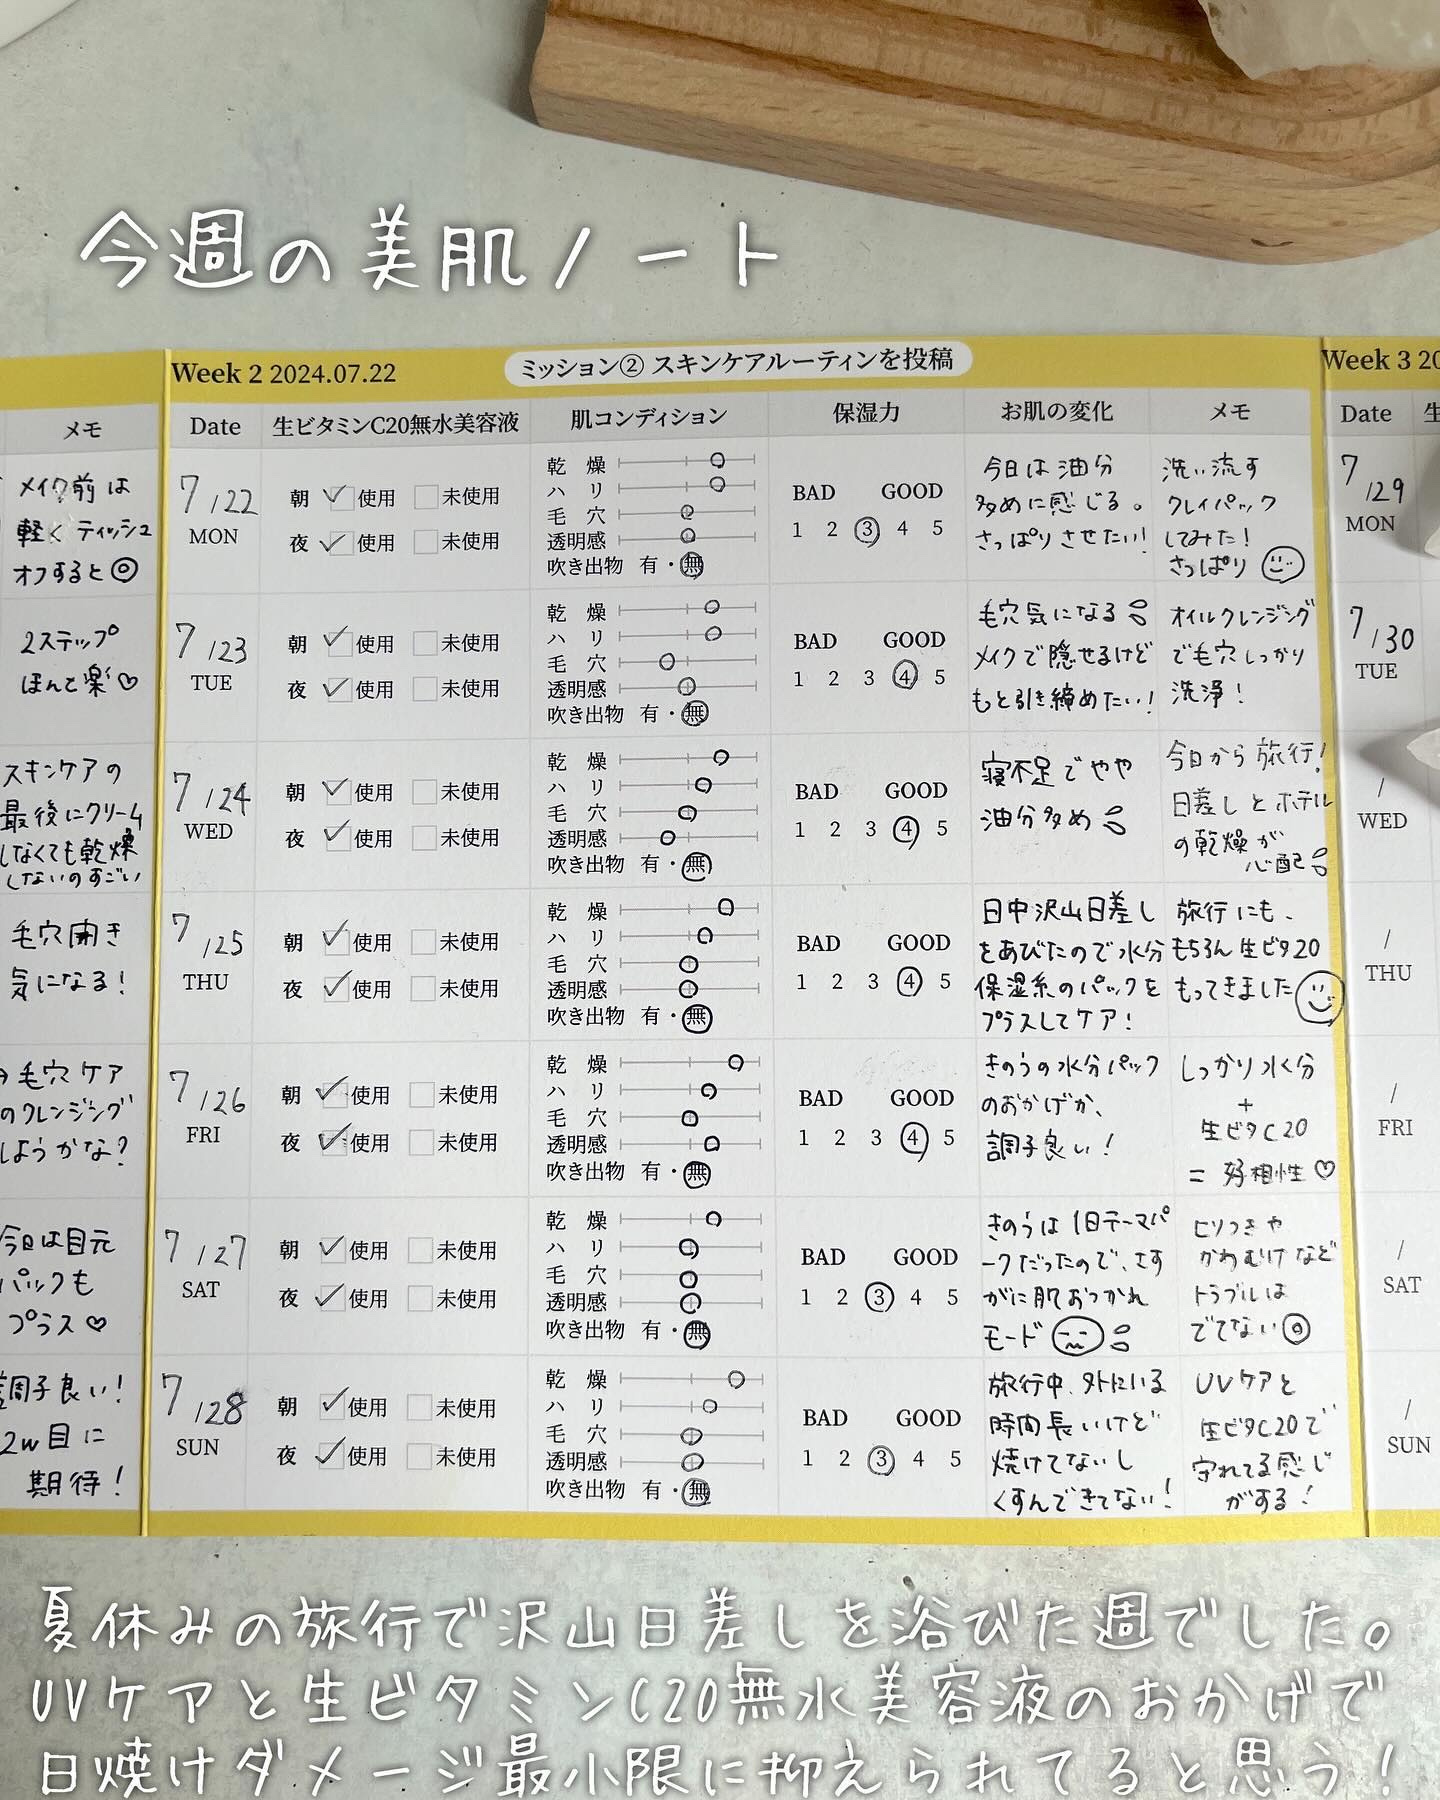 今週の美肌ノート
Week 2 2024.07.22
ミッション② スキンケアルーティンを投稿
Week 3 20
メモ
メイク前は
軽くティッシュ
オフすると◎
2ステップ
ほんと楽♡
スキンケアの
最後にクリーム
しなくても乾燥
しないのすごい
毛穴開き
気になる!
毛穴ケア
のクレンジング
しようかな?
今日は目元
パックも
プラス♡
調子良い!
2w目に
期待!
Date 生ビタミンC20無水美容液 肌コンディション 保湿力 お肌の変化 メモ
7/22
MON
朝 ✓使用 未使用
夜 ✓使用 未使用
乾 燥
ハ リ
毛 穴
透明感
吹き出物 有・無
BAD GOOD
1 2 3 4 5
今日は油分
多めに感じる。
さっぱりさせたい!
洗い流す
クレイパック
してみた!
さっぱり
7/23
TUE
朝 ✓使用 未使用
夜 ✓使用 未使用
乾 燥
ハ リ
毛 穴
透明感
吹き出物 有・無
BAD GOOD
1 2 3 4 5
毛穴気になる
メイクで隠せるけど
もと引き締めたい!
オイルクレンジング
で毛穴しっかり
洗浄!
7/24
WED
朝 ✓使用 未使用
夜 ✓使用 未使用
乾 燥
ハ リ
毛 穴
透明感
吹き出物 有・無
BAD GOOD
1 2 3 4 5
寝不足でやや
油分多め
今日から旅行!
日差しとホテル
の乾燥が
心配
7/25
THU
朝 ✓使用 未使用
夜 ✓使用 未使用
乾 燥
ハ リ
毛 穴
透明感
吹き出物 有・無
BAD GOOD
1 2 3 4 5
日中沢山日差し
をあびたので水分
保湿系のパックを
プラスしてケア!
旅行にも、
もちろん生ビタ20
もってきました
7/26
FRI
朝 ✓使用 未使用
夜 ✓使用 未使用
乾 燥
ハ リ
毛 穴
透明感
吹き出物 有・無
BAD GOOD
1 2 3 4 5
きのうの水分パック
のおかげか、
調子良い!
しっかり水分
+
生ビタC20
= 好相性♡
7/27
SAT
朝 ✓使用 未使用
夜 ✓使用 未使用
乾 燥
ハ リ
毛 穴
透明感
吹き出物 有・無
BAD GOOD
1 2 3 4 5
きのうは1日テーマパ
ークだったので、さす
がに肌おつかれ
モード
ヒリつきや
かわむけなど
トラブルは
でてない◎
7/28
SUN
朝 ✓使用 未使用
夜 ✓使用 未使用
乾 燥
ハ リ
毛 穴
透明感
吹き出物 有・無
BAD GOOD
1 2 3 4 5
旅行中、外にいる
時間長いけど
焼けてないし
くすんできてない!
UVケアと
生ビタC20で
守れてる感じ
がする!
Date 生
7/29
MON
7/30
TUE
/
WED
/
THU
/
FRI
/
SAT
/
SUN
夏休みの旅行で沢山日差しを浴びた週でした。
UVケアと生ビタミンC20無水美容液のおかげで
日焼けダメージ最小限に抑えられてると思う!